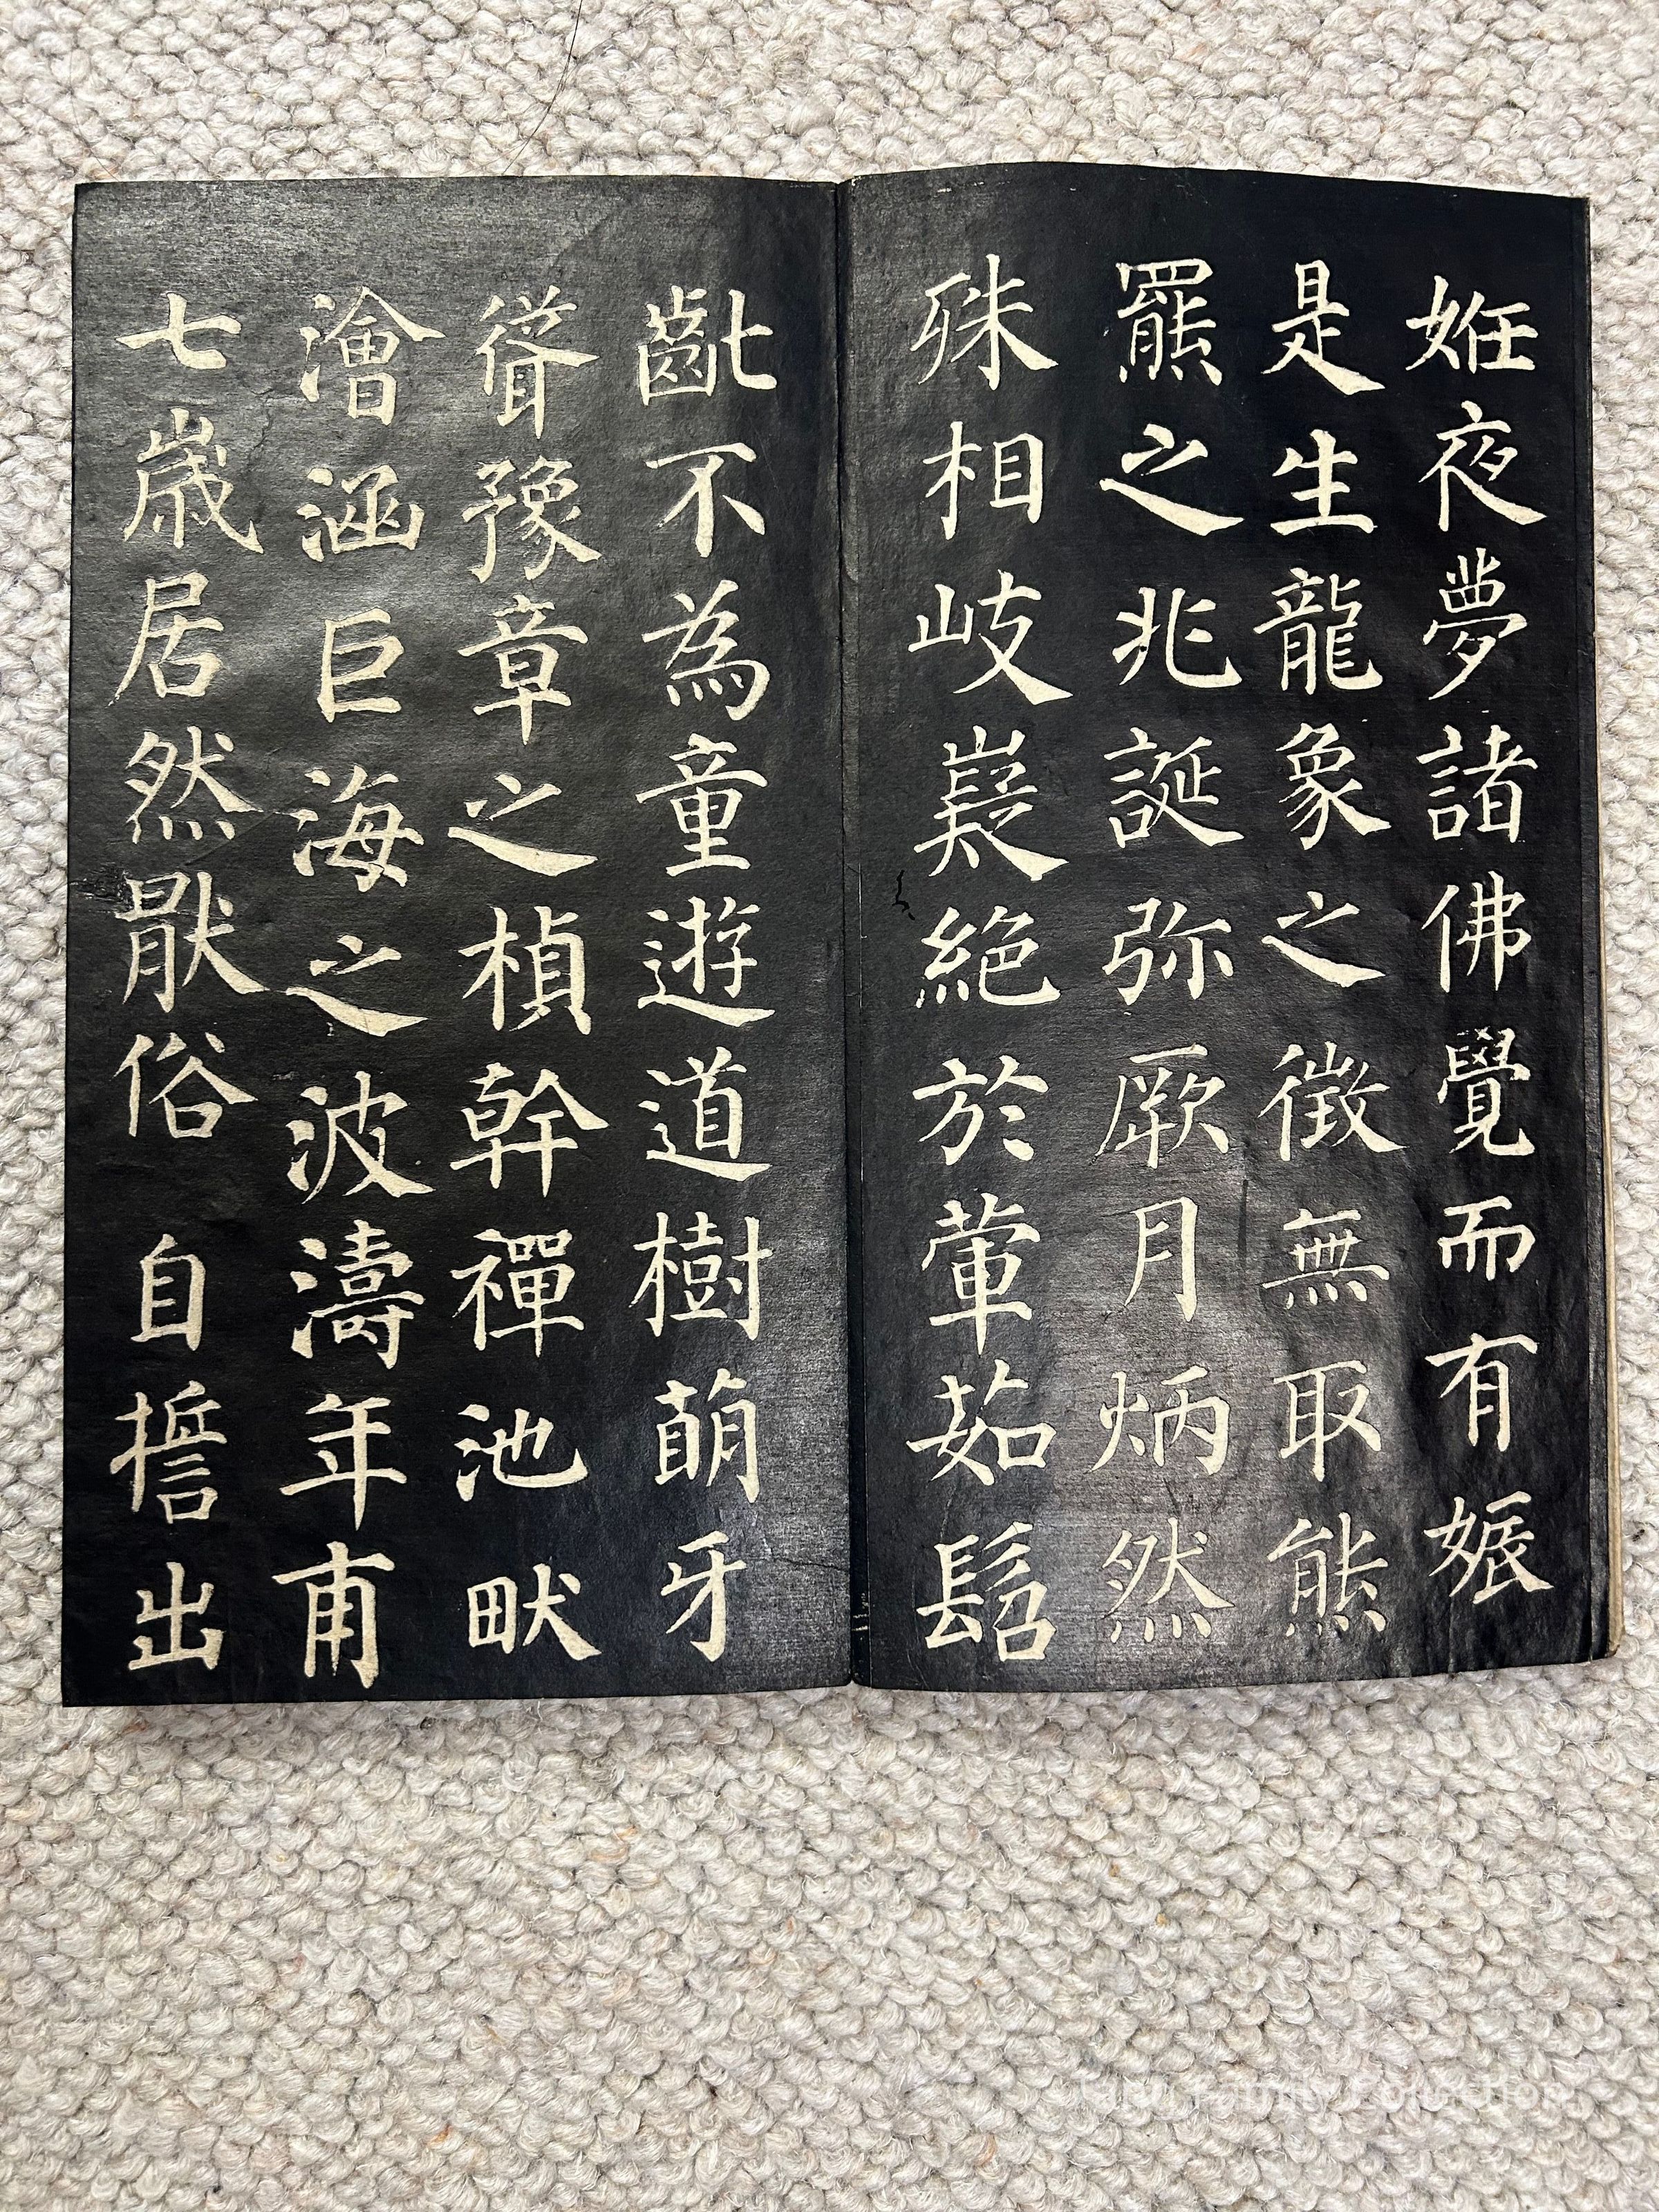 姙夜夢諸佛覺而有娠
是生龍象之徵無取熊
羆之兆誕弥厥月炳然
殊相岐嶷絕於葷茹髫
齔不為童遊道樹萌牙
聳豫章之楨幹禪池畎
澮涵巨海之波濤年甫
七歲居然猒俗自誓出
Family Collection